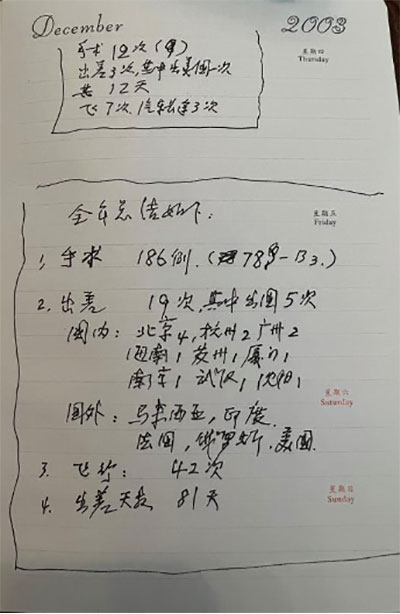 December 2003
星期四
Thursday
手术 12次
出差3次,其中出美国一次
共 12天
飞7次,汽车长途3次
星期五
Friday
全年总结如下:
1, 手术 186例.
2. 出差 19次,其中出国5次
国内: 北京4,杭州2广州2
海南1,苏州1,厦门1
南京1,武汉1,沈阳1
星期六
Saturday
国外: 马来西亚,印度,
法国,俄罗斯,美国
3. 飞行: 42次
4. 出差天数 81天
星期日
Sunday